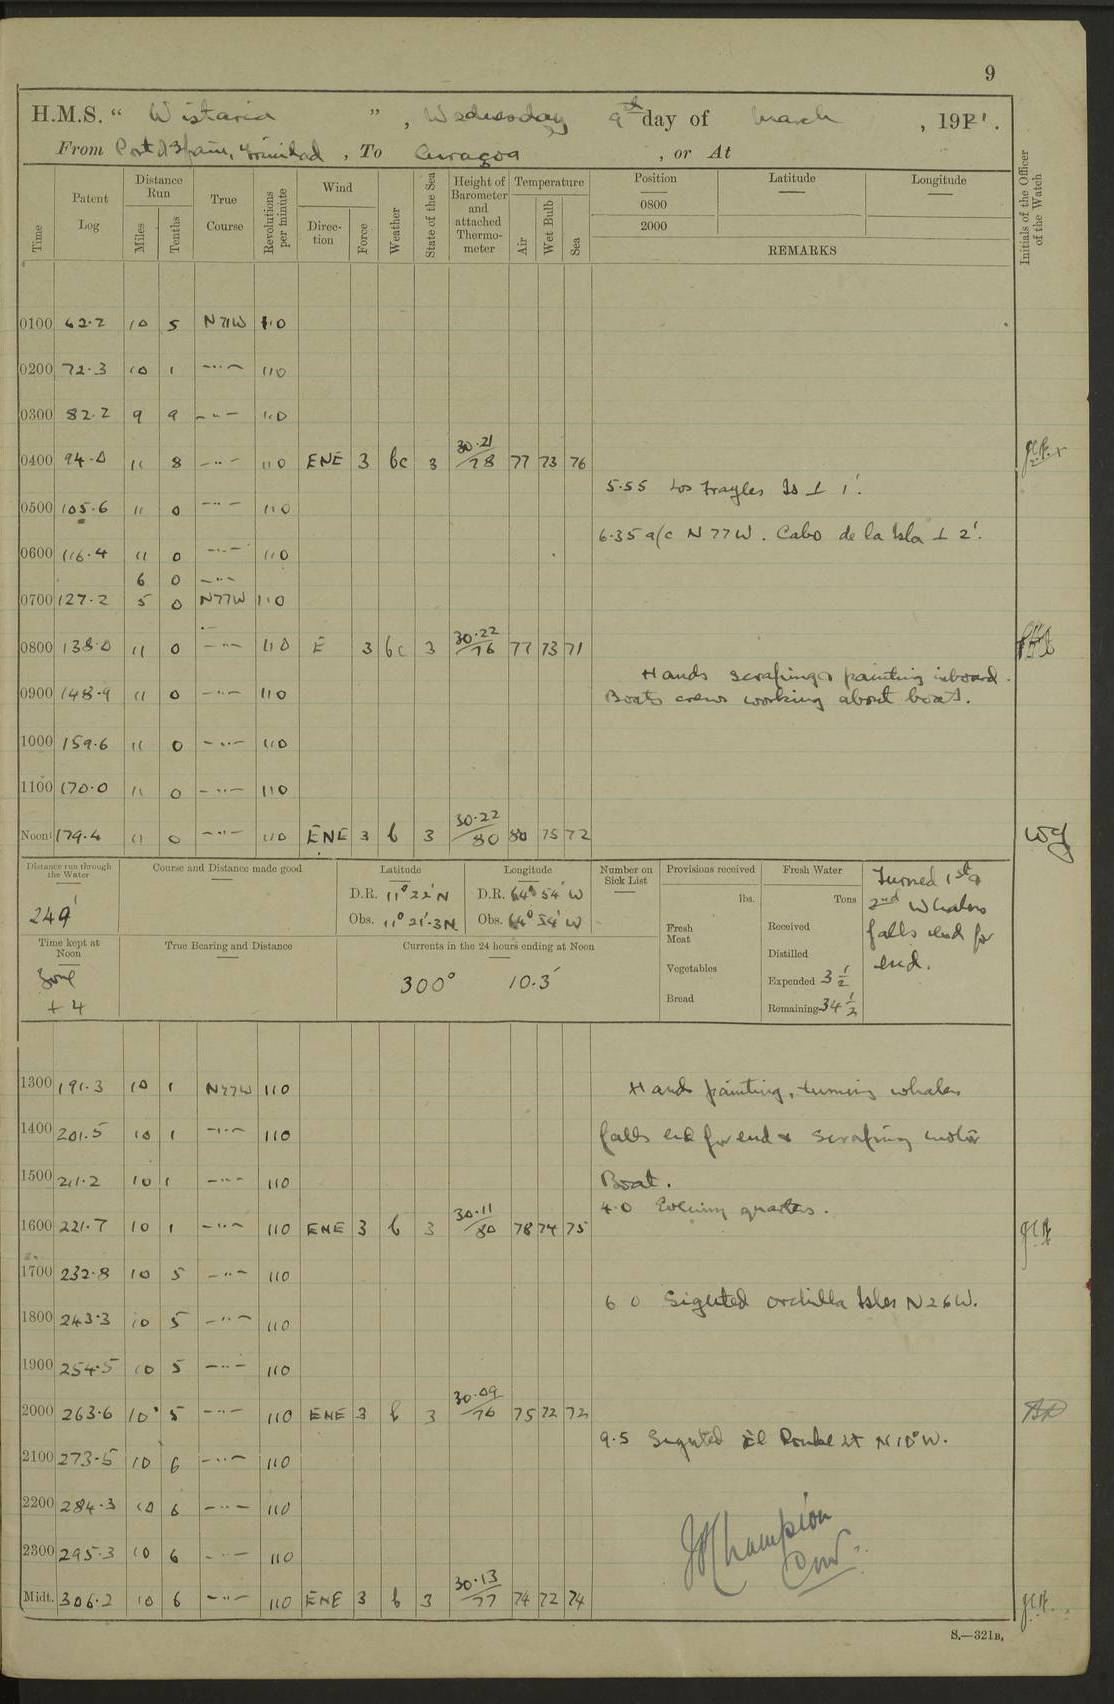 9
H.M.S. " Wistaria ", Wednesday 9th day of March, 1921.
From Port d'Spain, Trinidad, To Curaçoa, or At
Time
Patent Log
Distance Run
Miles
Tenths
True Course
Revolutions per minute
Wind
Direction
Force
Weather
State of the Sea
Height of Barometer and attached Thermometer
Temperature
Air
Wet Bulb
Sea
Position Latitude Longitude
0800
2000
REMARKS
Initials of the Officer of the Watch
0100 62.2 10 5 N71W 110
0200 72.3 10 1 —..— 110
0300 82.2 9 9 —..— 110
0400 94.0 11 8 —..— 110 ENE 3 bc 3 30.21/78 77 73 76
5.55 Los Frayles Is ⊥ 1'.
0500 105.6 11 0 —..— 110
6.35 a/c N77W. Cabo de la Isla ⊥ 2'.
0600 116.4 11 0 —..— 110
6 0 —..—
0700 127.2 5 0 N77W 110
0800 138.0 11 0 —..— 110 E 3 bc 3 30.22/76 77 73 71
Hands scraping & painting inboard.
0900 148.9 11 0 —..— 110
Boats crews working about boats.
1000 159.6 11 0 —..— 110
1100 170.0 11 0 —..— 110
Noon 179.4 11 0 —..— 110 ENE 3 b 3 30.22/80 80 75 72
Distance run through the Water
249'
Course and Distance made good
Latitude
D.R. 11° 22' N
Obs. 11° 21'.3 N
Longitude
D.R. 64° 54' W
Obs. 64° 54' W
Number on Sick List
Provisions received
lbs.
Fresh Meat
Vegetables
Bread
Fresh Water
Tons
Received
Distilled
Expended 3 1/2
Remaining 34 1/2
Turned 1st &
2nd Whalers
falls end for
end.
Time kept at Noon
Zone
+ 4
True Bearing and Distance
Currents in the 24 hours ending at Noon
300° 10.3'
1300 191.3 10 1 N77W 110
Hands painting, turning whalers
1400 201.5 10 1 —..— 110
falls end for end & scraping motor
1500 211.2 10 1 —..— 110
Boat.
4.0 Evening quarters.
1600 221.7 10 1 —..— 110 ENE 3 b 3 30.11/80 78 74 75
1700 232.8 10 5 —..— 110
6 0 Sighted Orchilla Isles N26W.
1800 243.3 10 5 —..— 110
1900 254.5 10 5 —..— 110
2000 263.6 10 5 —..— 110 ENE 3 b 3 30.09/76 75 72 72
9.5 Sighted El Roque Lt N10°W.
2100 273.5 10 6 —..— 110
2200 284.3 10 6 —..— 110
2300 295.3 10 6 —..— 110
JHChampion
Cmdr.
Midt. 306.2 10 6 —..— 110 ENE 3 b 3 30.13/77 74 72 74
S.—321B.